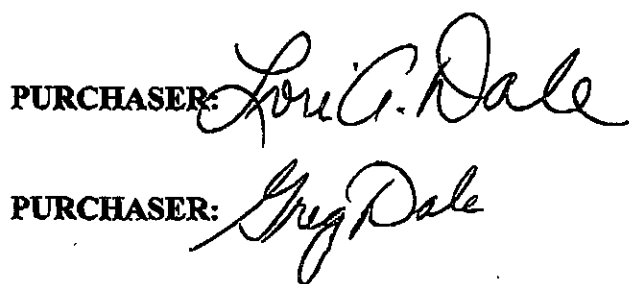 PURCHASER: Lori A. Dale
PURCHASER: Greg Dale